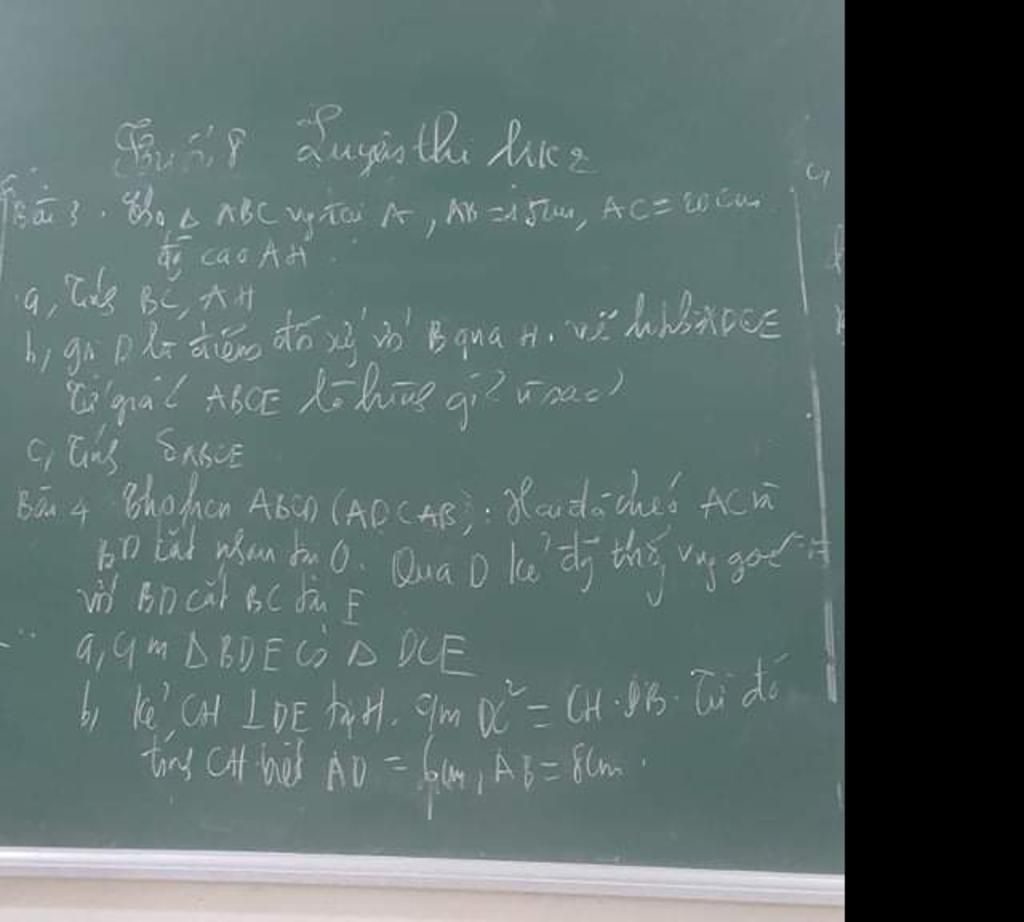 Buổi 8 Luyện thi hk2
Bài 3. Cho Δ ABC vg tại A, AB = 15cm, AC = 20cm
đg cao AH.
a, Tính BC, AH
b, gọi D là điểm đối xứ với B qua H. vẽ hbh ADCE
Tứ giác ABCE là hình gì? vì sao?
c, Tính SABCE
Bài 4 Cho hcn ABCD (AD<AB). Hai đg chéo AC và
BD cắt nhau tại O. Qua D kẻ đg thg vg góc
với BD cắt BC tại E
a, cm Δ BDE Δ DCE
b, kẻ CH ⊥ DE tại H. cm DC² = CH.DB. Từ đó
tính CH biết AD = 6cm, AB = 8cm.
c,